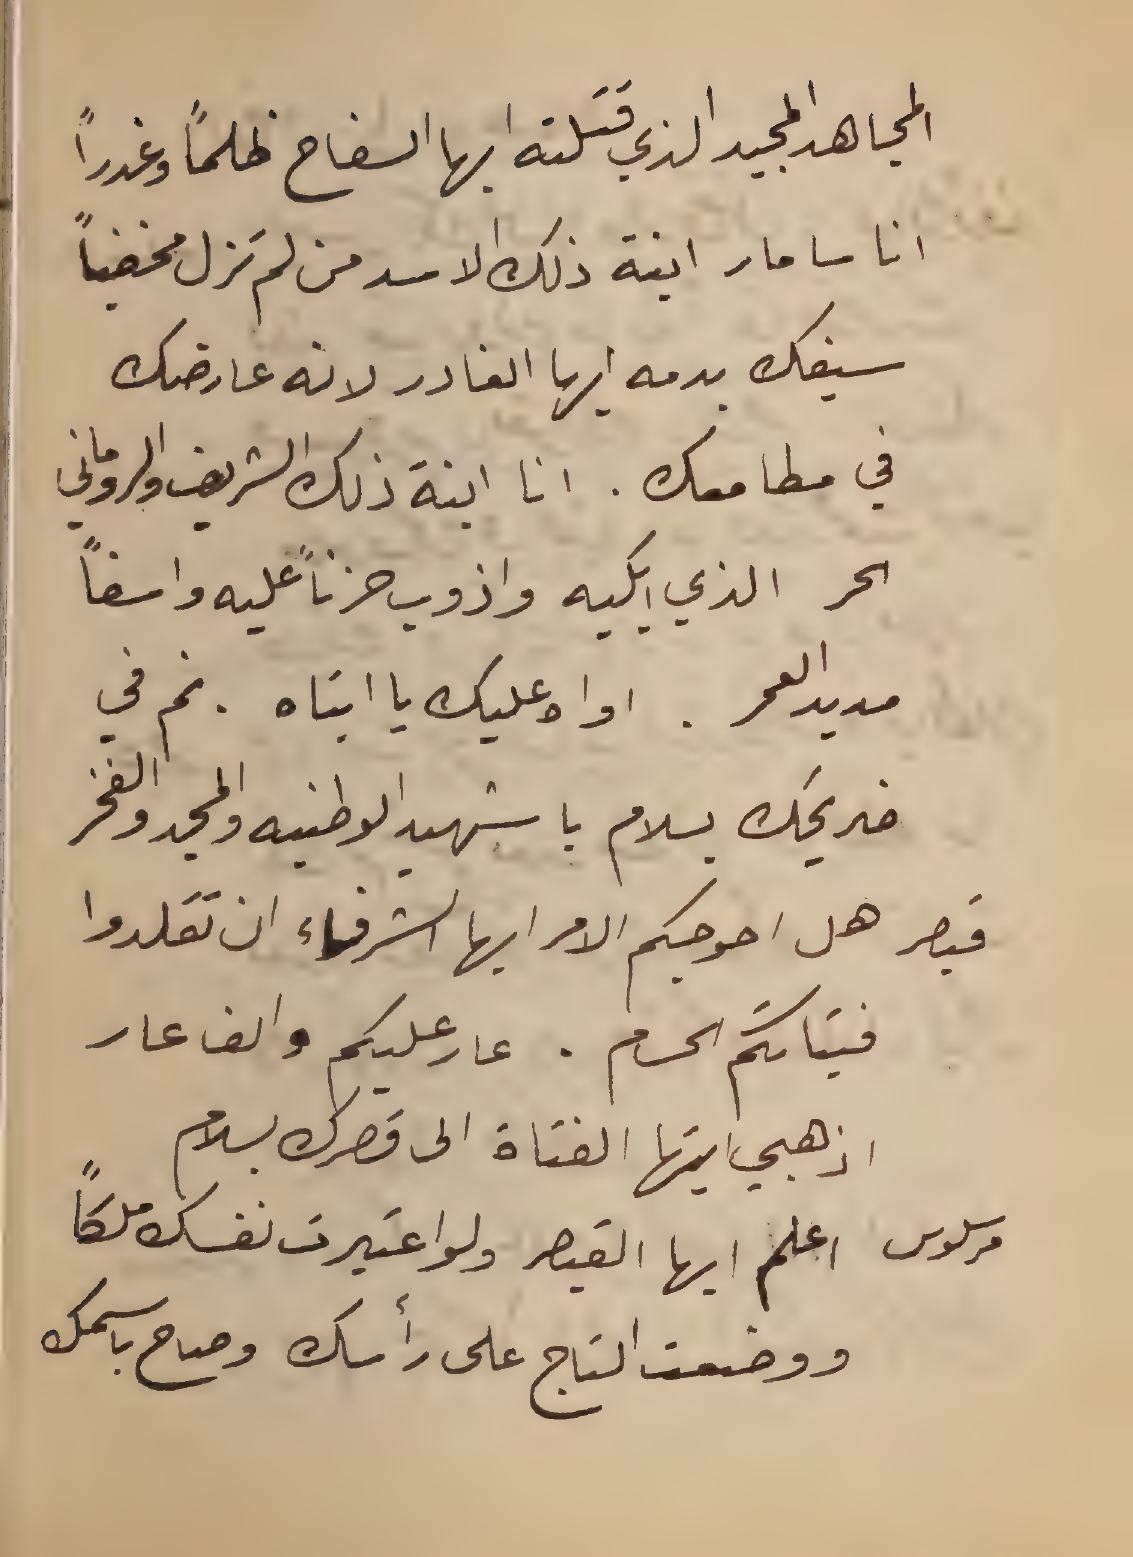 المجاهد المجيد الذي قَتَلته ايها السفاح ظلماً وغدراً
انا سامار ابنة ذلك الاسد من لم تزل مخضباً
سيفك بدمه ايها الغادر لانه عارضك
في مطامعك . انا ابنة ذلك الشريف والروماني
الحر الذي ابكيه واذوب حزناً عليه واسفاً
مديد العمر . اواه عليك يا ابتاه . نم في
ضريحك بسلام يا شهيد الوطنيه والمجد والفخر
قيصر هل احوجكم الامر ايها الشرفاء ان تقلدوا
فتياتكم الحسام . عار عليكم والف عار
اذهبي ايتها الفتاة الى قصرك بسلام
مرسلوس اعلم ايها القيصر ولو اعتبرت نفسك ملكاً
ووضعت التاج على رأسك وصاح باسمك